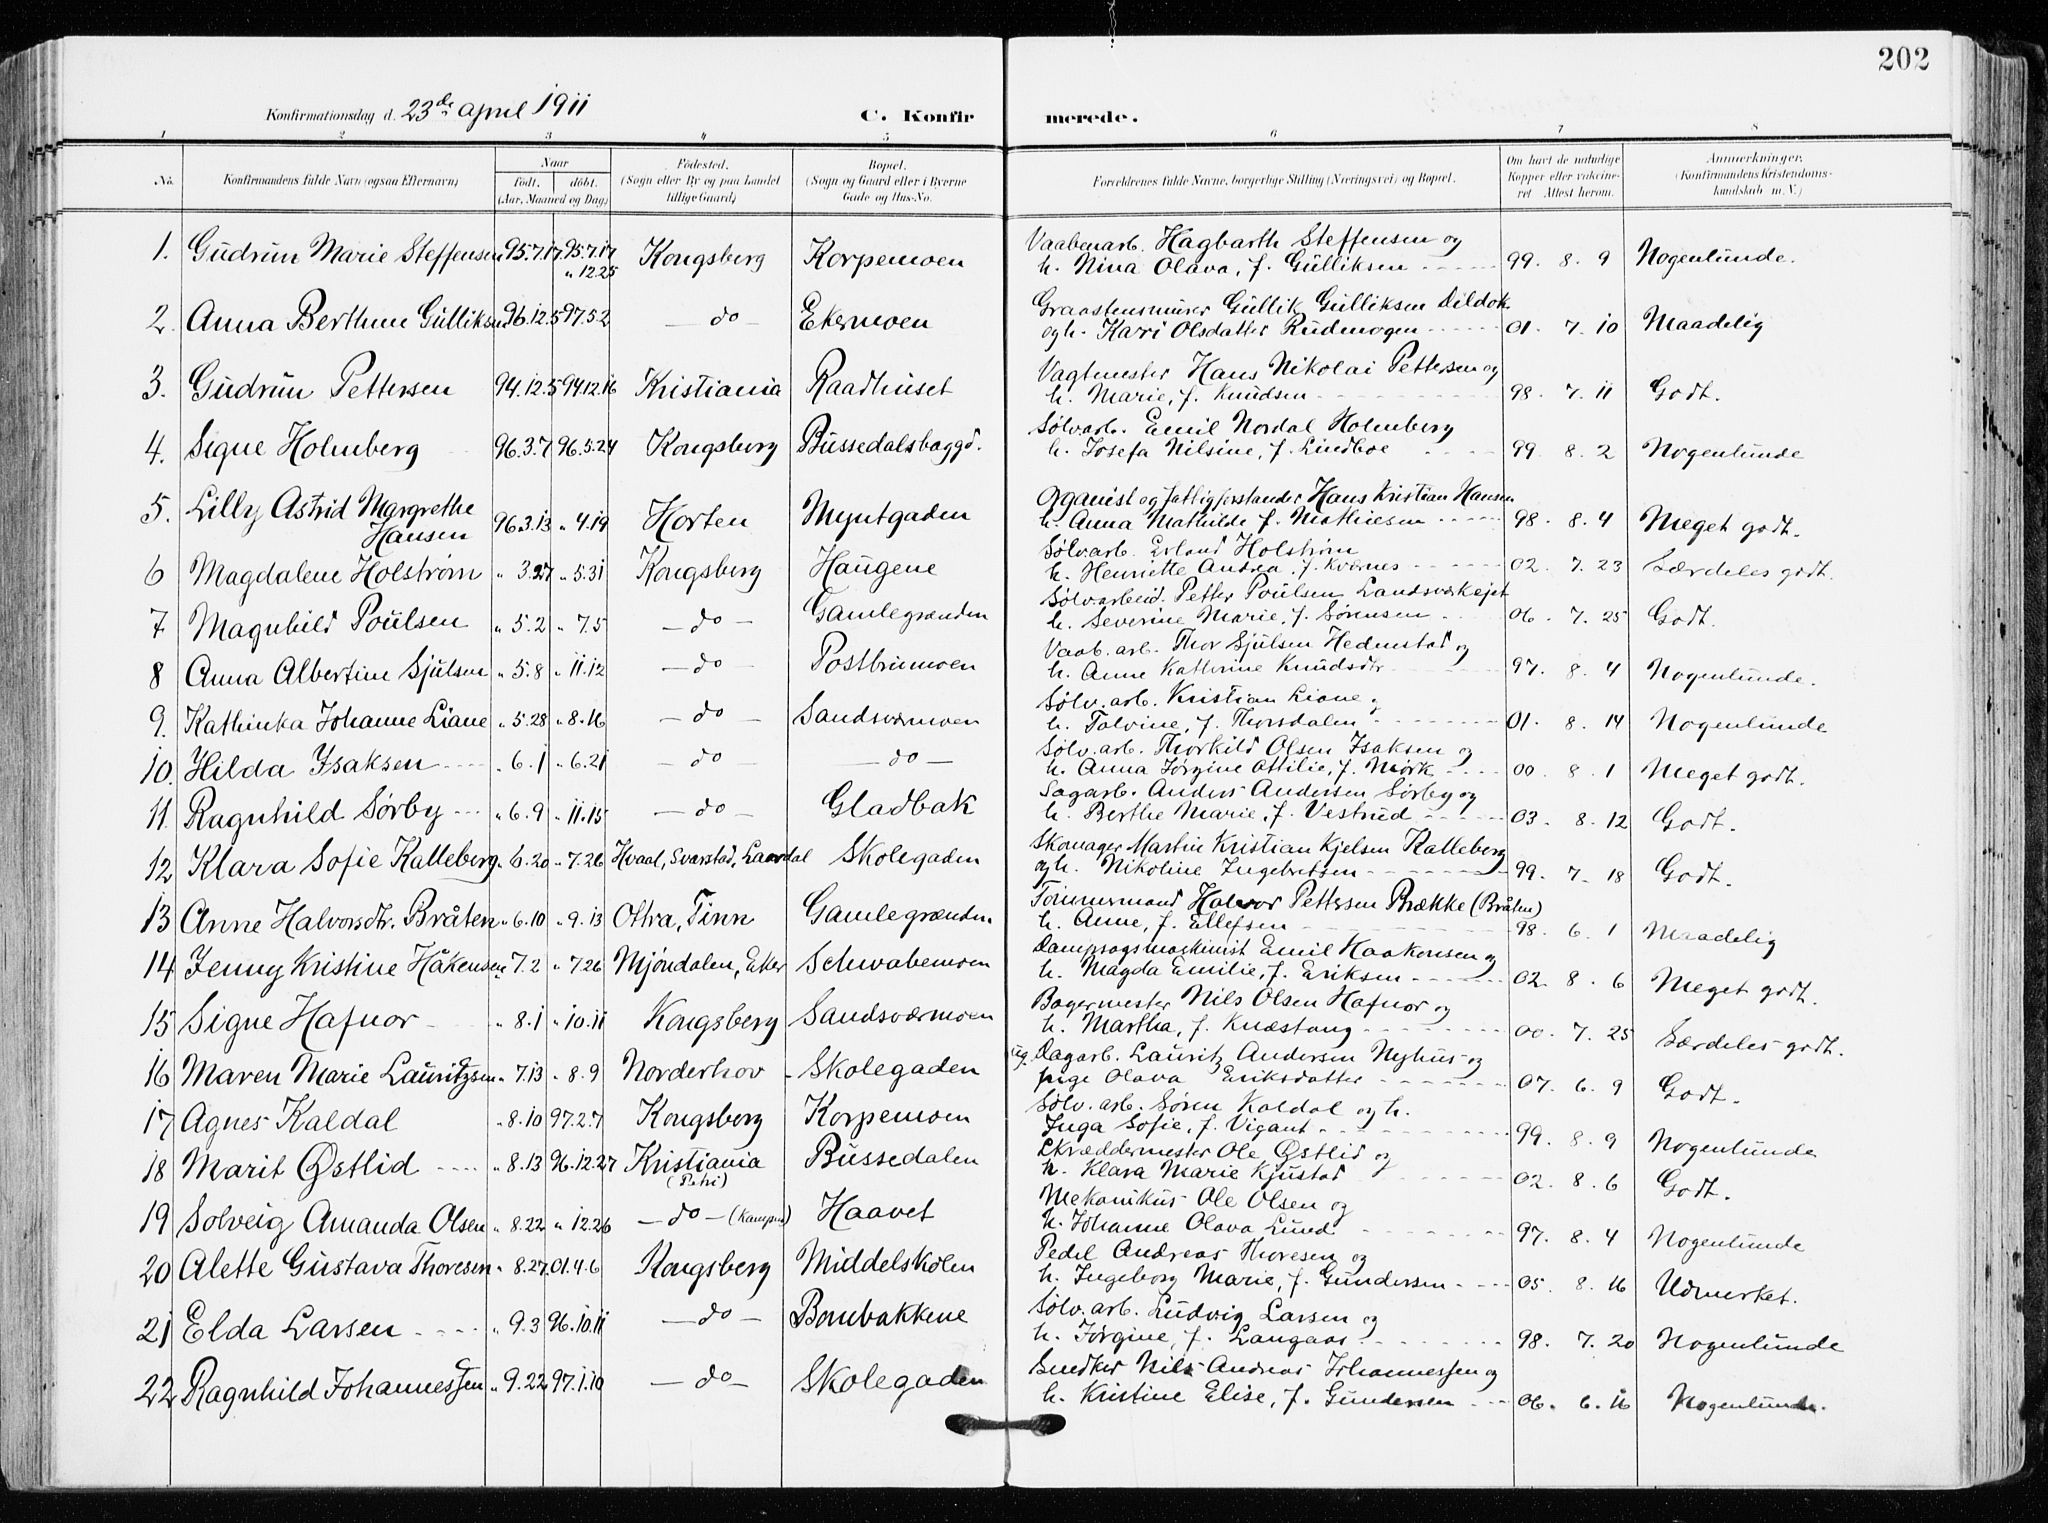 202
Konfirmationsdag d. 23de april 1911 C. Konfirmerede.
1 2 3 4 5 6 7 8
No. Konfirmandens fulde Navn (ogsaa Efternavn) Naar født. døbt. (Aar, Maaned og Dag) Fødested. (Sogn eller By og paa Landet tillige Gaard) Bopæl. (Sogn og Gaard eller i Byerne Gade og Hus-No. Forældrenes fulde Navne, borgerlige Stilling (Næringsvei) og Bopæl. Om havt de naturlige Kopper eller vakcineret Attest herom. Anmerkninger. (Konfirmandens Kristendomskundskab m. V.)
1. Gudrun Marie Steffensen 95.7.17 95.7.17 Kongsberg Korpemoen Vaabenarb. Hagbarth Steffensen og
" 12.25 h. Nina Olava, f. Gulliksen 99. 8. 9 Nogenlunde.
2. Anna Berthine Gulliksen 96.12.5 97.5.2 - do - Ekermoen Graastensmurer Gullik Gulliksen
og h. Kari Olsdatter Rudmogen 01. 7. 10 Maadelig
3. Gudrun Pettersen 94.12.5 94.12.16 Kristiania Raadhuset Vagtmester Hans Nikolai Pettersen og
h. Marie, f. Knudsen 98. 7. 11 Godt.
4. Signe Holmberg 96.3.7 96.5.24 Kongsberg Bussedalsbaggd. Sølvarb. Emil Nordal Holmberg
h. Josefa Nilsine, f. Lindboe 99. 8. 2 Nogenlunde
5. Lilly Astrid Margrethe Hansen 96.3.13 " 4.19 Horten Myntgaden Organist og fattigforstander Hans Kristian Hansen
h. Anna Mathilde f. Mathiesen 98. 8. 4 Meget godt.
6 Magdalene Holstrøm " 3.27 " 5.31 Kongsberg Haugene Sølvarb. Erland Holstrøm
h. Henriette Andrea, f. Kværnes 02. 7. 23 Særdeles godt.
7 Magnhild Poulsen " 5.2 " 7.5 - do - Gamlegrænden Sølvarbeid. Petter Poulsen
h. Severine Marie, f. Sørensen 06. 7. 25 Godt.
8 Anna Albertine Sjulsen " 5.8 " 11.12 - do - Postbrumoen Vaab. arb. Thor Sjulsen Hedenstad og
h. Anne Kathrine Knudsdtr 97. 8. 4 Nogenlunde.
9. Kathinka Johanne Liane " 5.28 " 8.16 - do - Sandsværmoen Sølv. arb. Kristian Liane
h. Tolvine, f. Thorsdalen 01. 8. 14 Nogenlunde
10. Hilda Isaksen " 6.1 " 6.21 - do - - do - Sølv. arb. Thorkild Olsen Isaksen og
h. Anna Jørgine Ottilie, f. Mørk 00. 8. 1 Meget godt.
11. Ragnhild Sørby " 6.9 " 11.15 - do - Gladbak Sagarb. Anders Andersen Sørby og
h. Berthe Marie, f. Vestrud 03. 8. 12 Godt.
12 Klara Sofie Kalleberg " 6.20 " 7.26 Hvaal, Svarstad, Laardal Skolegaden Skomager Martin Kristian Kjelsen Kalleberg
og h. Nikoline Ingebretsen 99. 7. 18 Godt.
13 Anne Halvorsdtr. Bråten " 6.10 " 9.13 Tinn Gamlegrænden Tømmermand Halvor Pettersen Brække (Bråten)
h. Anne, f. Ellefsen 98. 6. 1 Maadelig
14 Jenny Kristine Håkensen " 7.2 " 7.26 Mjøndalen, Eker Schwabemoen Dampsagsmaskinist Emil Haakonsen og
h. Magda Emilie, f. Eriksen 02. 8. 6 Meget godt.
15 Signe Hafnor " 8.1 " 10.11 Kongsberg Sandsværmoen Bagermester Nils Olsen Hafnor og
h. Martha, f. Knæstang 00. 7. 25 Særdeles godt.
16 Maren Marie Lauritzsen " 7.13 " 8.9 Norderhov Skolegaden Ug. Dagarb. Lauritz Andersen Nyhus og
pige Olava Eriksdatter 07. 6. 9 Godt.
17 Agnes Kaldal " 8.10 97.2.7 Kongsberg Korpemoen Sølv. arb. Søren Kaldal og h.
Inga Sofie, f. Vigant 99. 8. 9 Nogenlunde
18 Marit Østlid " 8.13 96.12.27 Kristiania (Petri) Bussedalen Skræddermester Ole Østlid og
h. Klara Marie Kjustad 02. 8. 6 Godt.
19 Solveig Amanda Olsen " 8.22 " 12.26 - do - (Kampen) Haavet Mekanikus Ole Olsen og
h. Johanne Olava Lund 97. 8. 4 Nogenlunde
20 Alette Gustava Thoresen " 8.27 01.4.6 Kongsberg Middelskolen Pedel Andreas Thoresen og
h. Ingeborg Marie, f. Gundersen 05. 8. 16 Udmerket.
21 Elda Larsen " 9.3 96.10.11 - do - Bombakkene Sølv. arb. Ludvig Larsen og
h. Jørgine, f. Langaas 98. 7. 20 Nogenlunde
22 Ragnhild Johannessen " 9.22 97.1.10 - do - Skolegaden Snedker Nils Andreas Johannessen og
h. Kristine Elise, f. Gundersen 06. 6. 16 Nogenlunde.